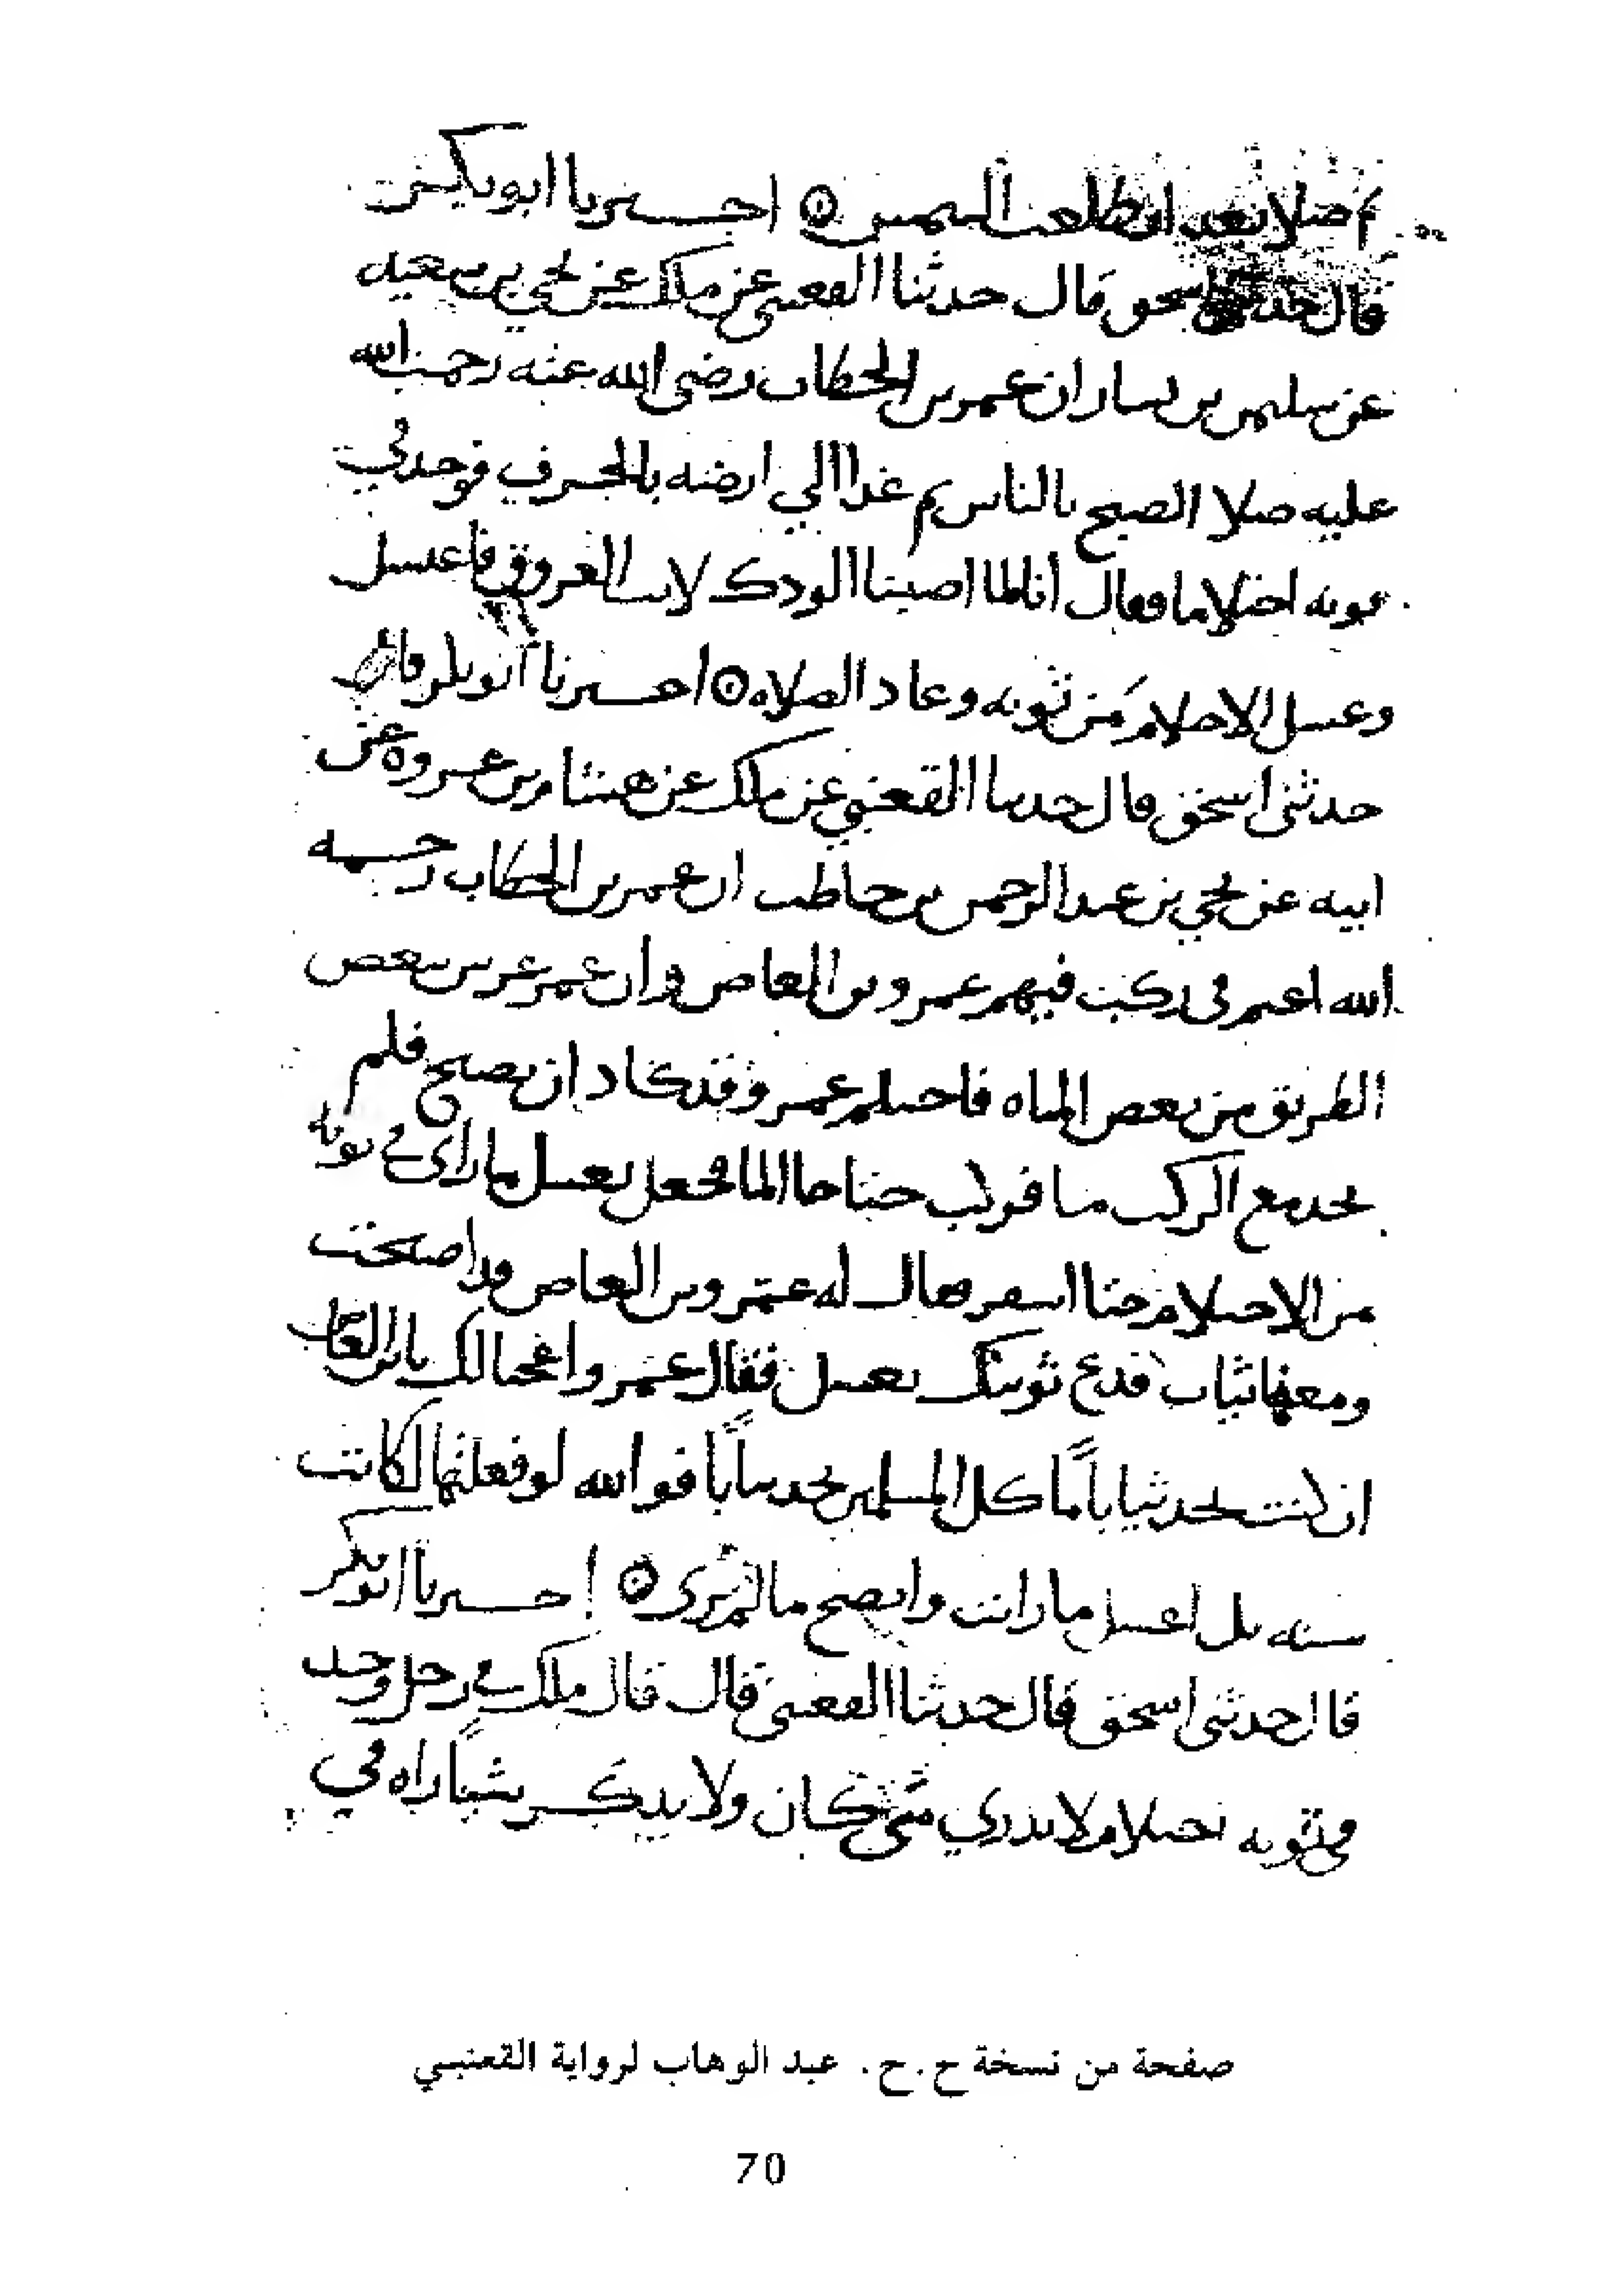 ثم صلا بعد ان طلعت الشمس ۞ اخبرنا ابو بكر
قال حدثني اسحق قال حدثنا القعنبي عن ملك عن يحيي بن سعيد
عن سليمن بن يسار ان عمر بن الخطاب رضى الله عنه رحمت الله
عليه صلا الصبح بالناس ثم غدا الي ارضه بالجرف فوجد في
ثوبه احتلاما فقال انا لما اصبنا الودك لانت العروق فاغتسل
وغسل الاحتلام من ثوبه وعاد الصلاه ۞ اخبرنا ابو بكر قال
حدثنى اسحق قال حدثنا القعنبي عن ملك عن هشام بن عروه عن
ابيه عن يحيي بن عبد الرحمن بن حاطب ان عمر بن الخطاب رحمه
الله اعتمر في ركب فيهم عمرو بن العاص وان عمر عرس ببعض
الطريق من بعض المياه فاحتلم عمر وقد كاد ان يصبح فلم
يجد مع الركب ما فركب حتا جا الما فجعل يغسل ما راى في ثوبه
من الاحتلام حتا اسفر فقال له عمرو بن العاص قد اصبحت
ومعنا ثياب فدع ثوبك يغسل فقال عمر واعجبا لك يابن العاص
ان كنت تجد ثيابا ما كل المسلمين يجد ثيابا فوالله لو فعلتها لكانت
سنه بل اغسل ما رايت وانضح ما لم ترى ۞ اخبرنا ابو بكر
قال حدثنى اسحق قال حدثنا القعنبي قال قال ملك في رجل وجد
في ثوبه احتلام لا يدري متى كان ولا يذكر شيئا راه في
صفحة من نسخة ح. ح. عبد الوهاب لرواية القعنبي
70